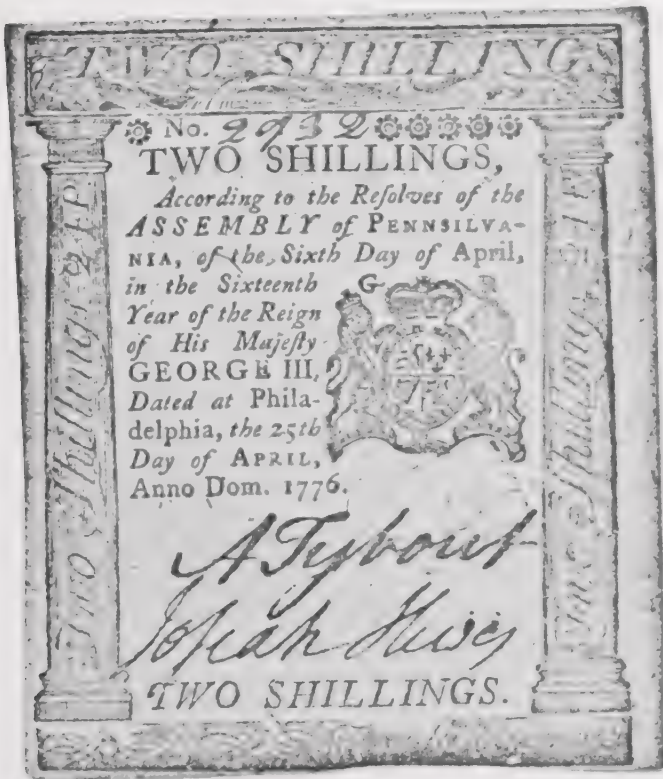 TWO SHILLINGS
No. 2932
TWO SHILLINGS,
According to the Reſolves of the
ASSEMBLY of PENNSILVA-
NIA, of the Sixth Day of April,
in the Sixteenth
Year of the Reign
of His Majeſty
GEORGE III,
Dated at Phila-
delphia, the 25th
Day of APRIL,
Anno Dom. 1776.
G
Two Shillings
Two Shillings
A Tybout
Josiah Hewes
TWO SHILLINGS.